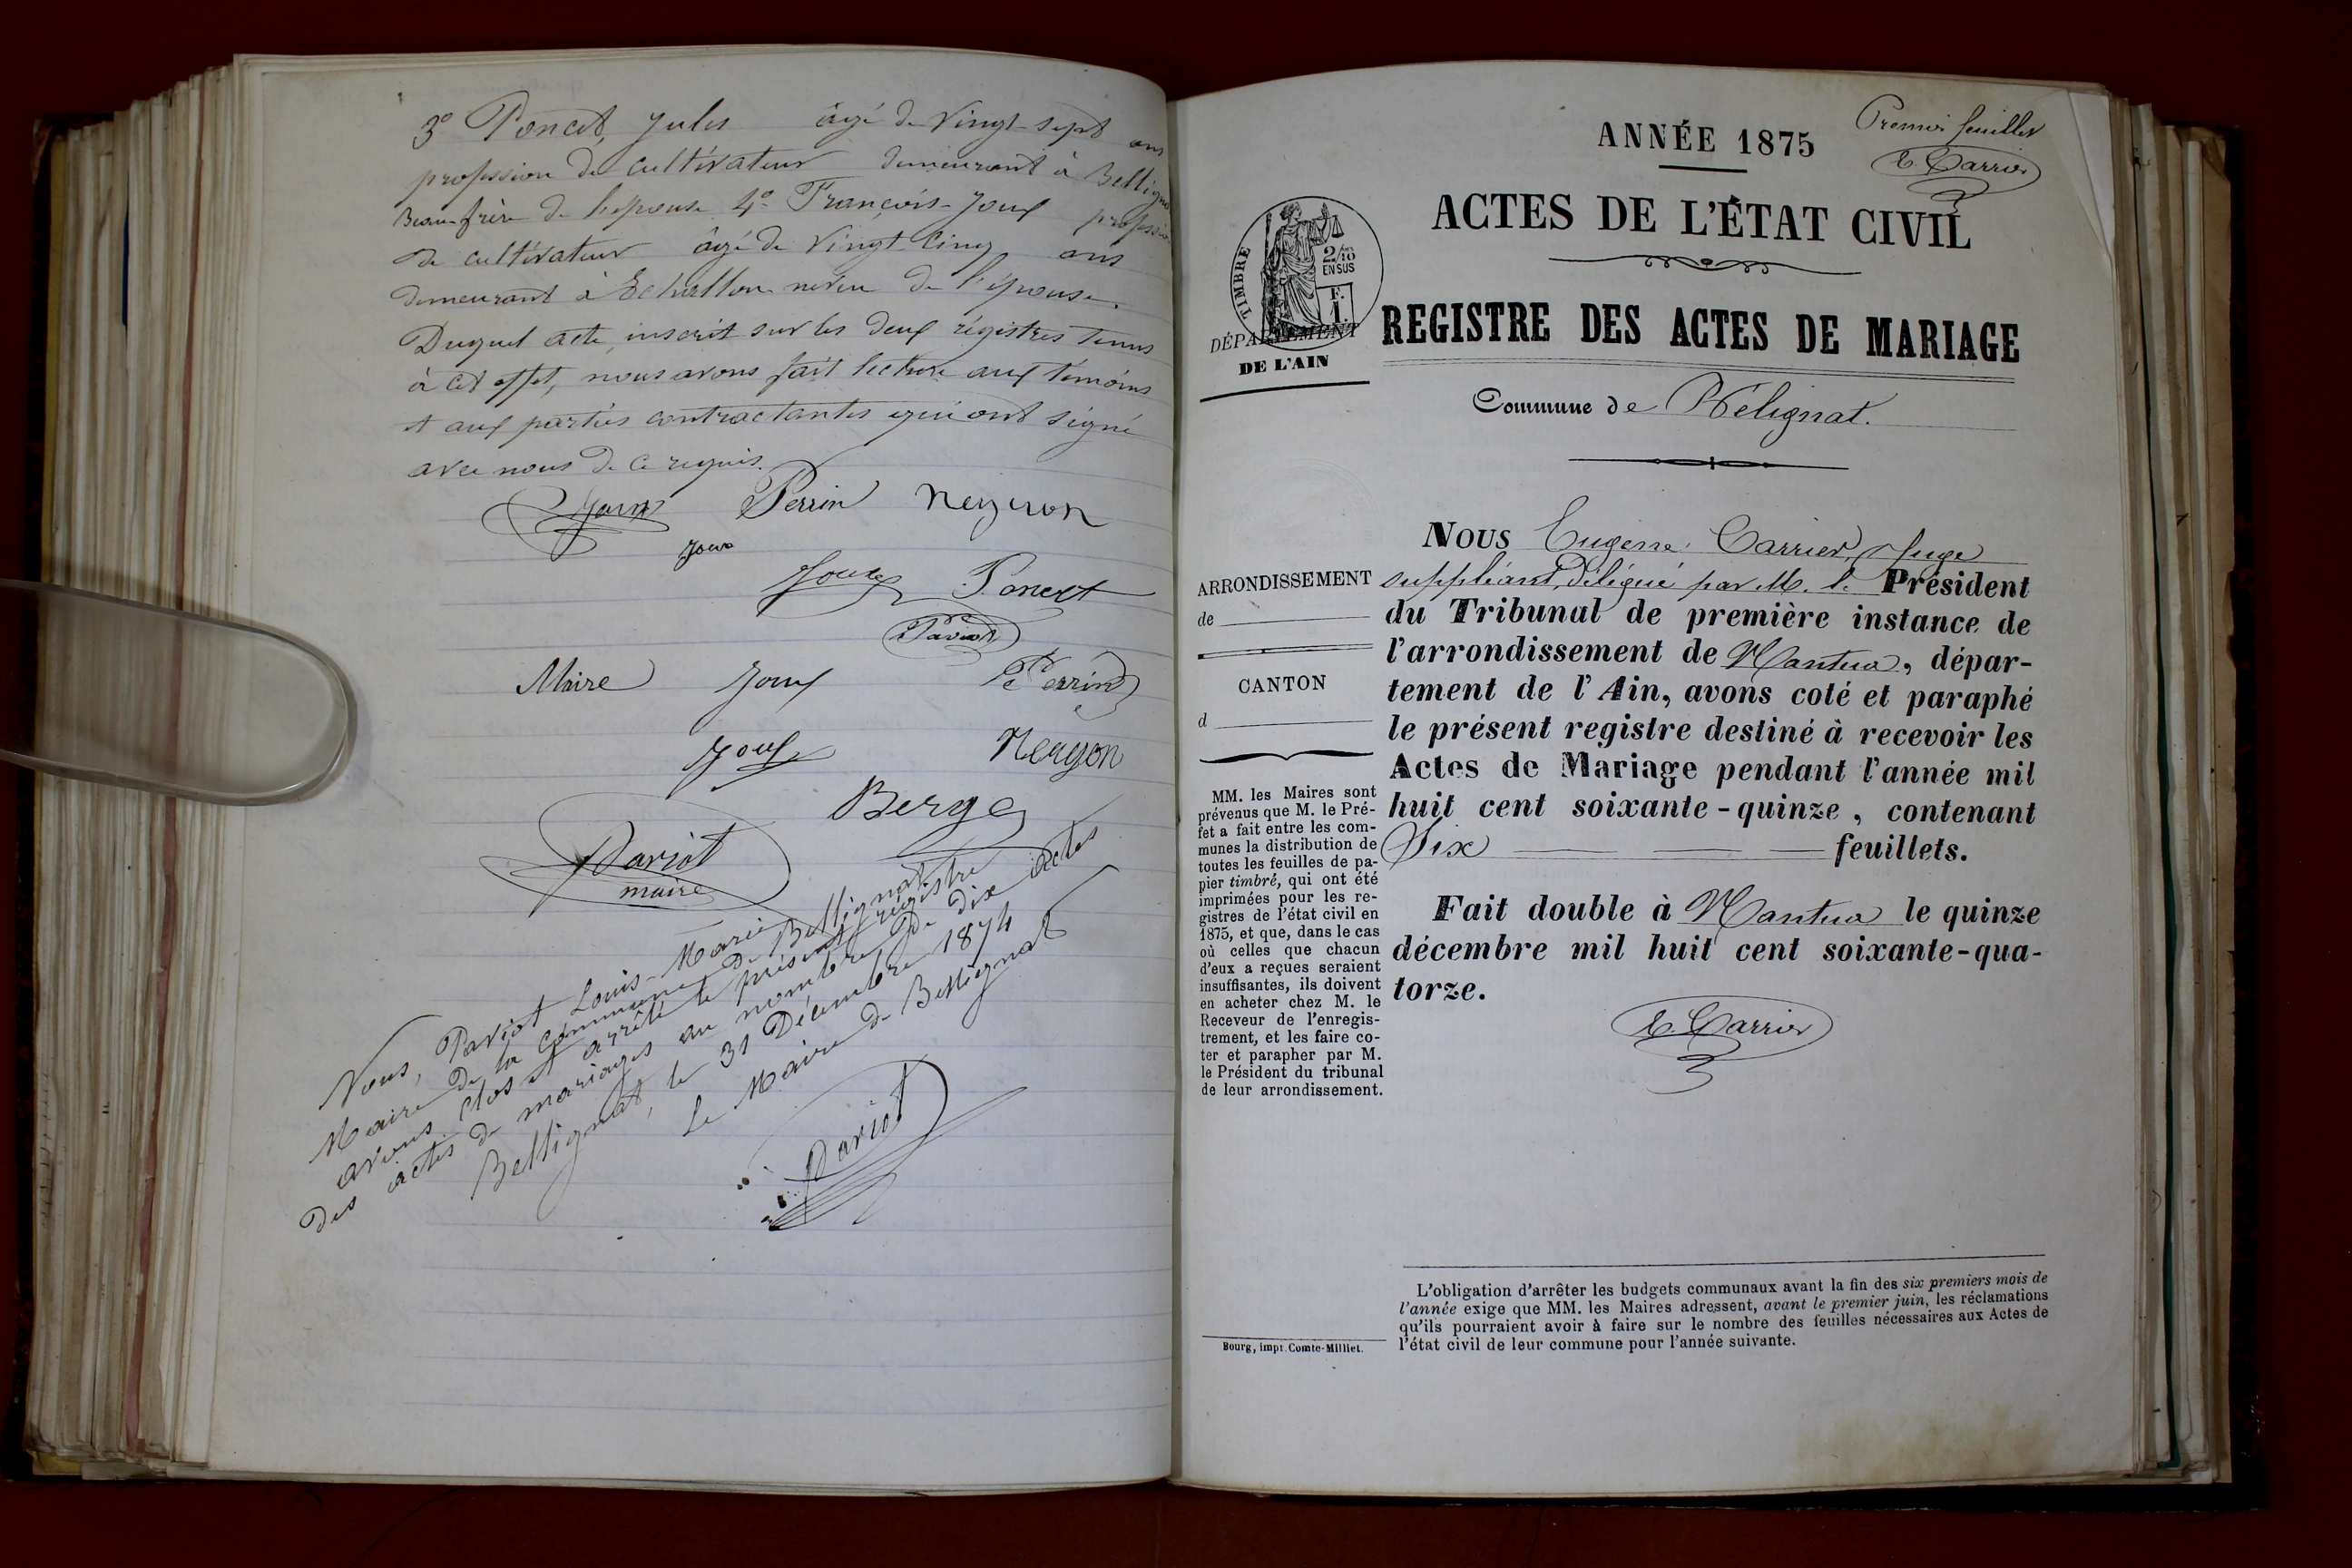 3° Poncet, Jules âgé de vingt-sept ans
profession de cultivateur demeurant à Bellignat
Beau-frère de l'epouse 4° François-Joux profession
de cultivateur âgé de vingt cinq ans
demeurant à Echallon neveu de l'épouse.
Duquel acte, inscrit sur les deux régistres tenus
à cet effet, nous avons fait lecture aux témoins
et aux parties contractantes qui ont signé
avec nous de ce requis.
Perrin Neyron
Joux
Poncet
Paviot
Maire Joux Perrin
Joux
Berge
Paviot
maire
Nous, Paviot Louis-Marie
Maire de la Commune de Bellignat
avons clos et arrêté le présent régistre
des actes de mariages au nombre de dix actes
Bellignat, le 31 Décembre 1874
Le Maire de Bellignat
Paviot
Premier feuillet
E. Carrier
ANNÉE 1875
ACTES DE L'ÉTAT CIVIL
TIMBRE
2/10
EN SUS
F.
1.
DÉPARTEMENT
DE L'AIN
REGISTRE DES ACTES DE MARIAGE
Commune de Bélignat.
NOUS Eugène Carrier, Juge
suppléant, délégué par M. le Président
du Tribunal de première instance de
l'arrondissement de Nantua, dépar-
tement de l'Ain, avons coté et paraphé
le présent registre destiné à recevoir les
Actes de Mariage pendant l'année mil
huit cent soixante-quinze, contenant
Six feuillets.
Fait double à Nantua le quinze
décembre mil huit cent soixante-qua-
torze.
E. Carrier
ARRONDISSEMENT
de
CANTON
d
MM. les Maires sont
prévenus que M. le Pré-
fet a fait entre les com-
munes la distribution de
toutes les feuilles de pa-
pier timbré, qui ont été
imprimées pour les re-
gistres de l'état civil en
1875, et que, dans le cas
où celles que chacun
d'eux a reçues seraient
insuffisantes, ils doivent
en acheter chez M. le
Receveur de l'enregis-
trement, et les faire co-
ter et parapher par M.
le Président du tribunal
de leur arrondissement.
L'obligation d'arrêter les budgets communaux avant la fin des six premiers mois de
l'année exige que MM. les Maires adressent, avant le premier juin, les réclamations
qu'ils pourraient avoir à faire sur le nombre des feuilles nécessaires aux Actes de
l'état civil de leur commune pour l'année suivante.
Bourg, impr. Comte-Milliet.